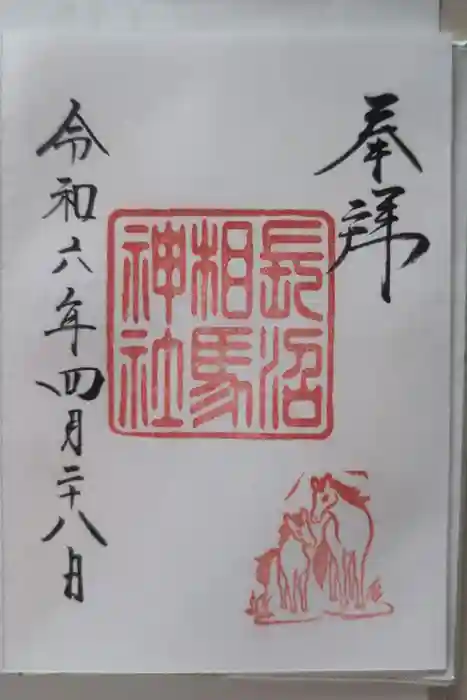 奉拝
長沼
相馬
神社
令和六年四月二十八日